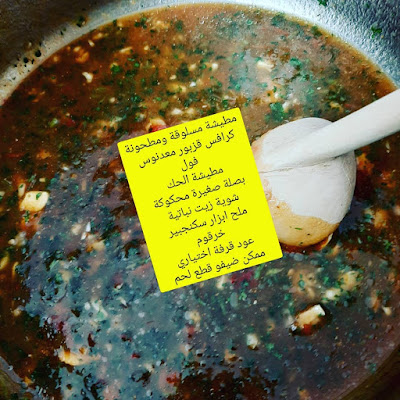 مطيشة مسلوقة ومطحونة
كرافس قزبور معدنوس
فول
مطيشة الحك
بصلة صغيرة محكوكة
شوية زيت نباتية
ملح ابزار سكنجبير
خرقوم
عود قرفة اختياري
ممكن ضيفو قطع لحم